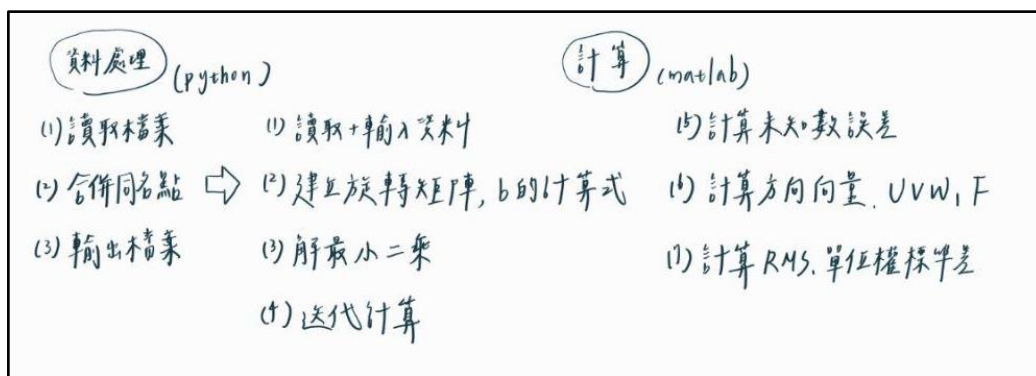 資料處理 (python)
(1) 讀取檔案
(2) 合併同名點
(3) 輸出檔案
計算 (matlab)
(1) 讀取+輸入資料
(2) 建立旋轉矩陣, b的計算式
(3) 解最小二乘
(4) 迭代計算
(5) 計算未知數誤差
(6) 計算方向向量. UVW, F
(7) 計算 RMS. 單位權標準差